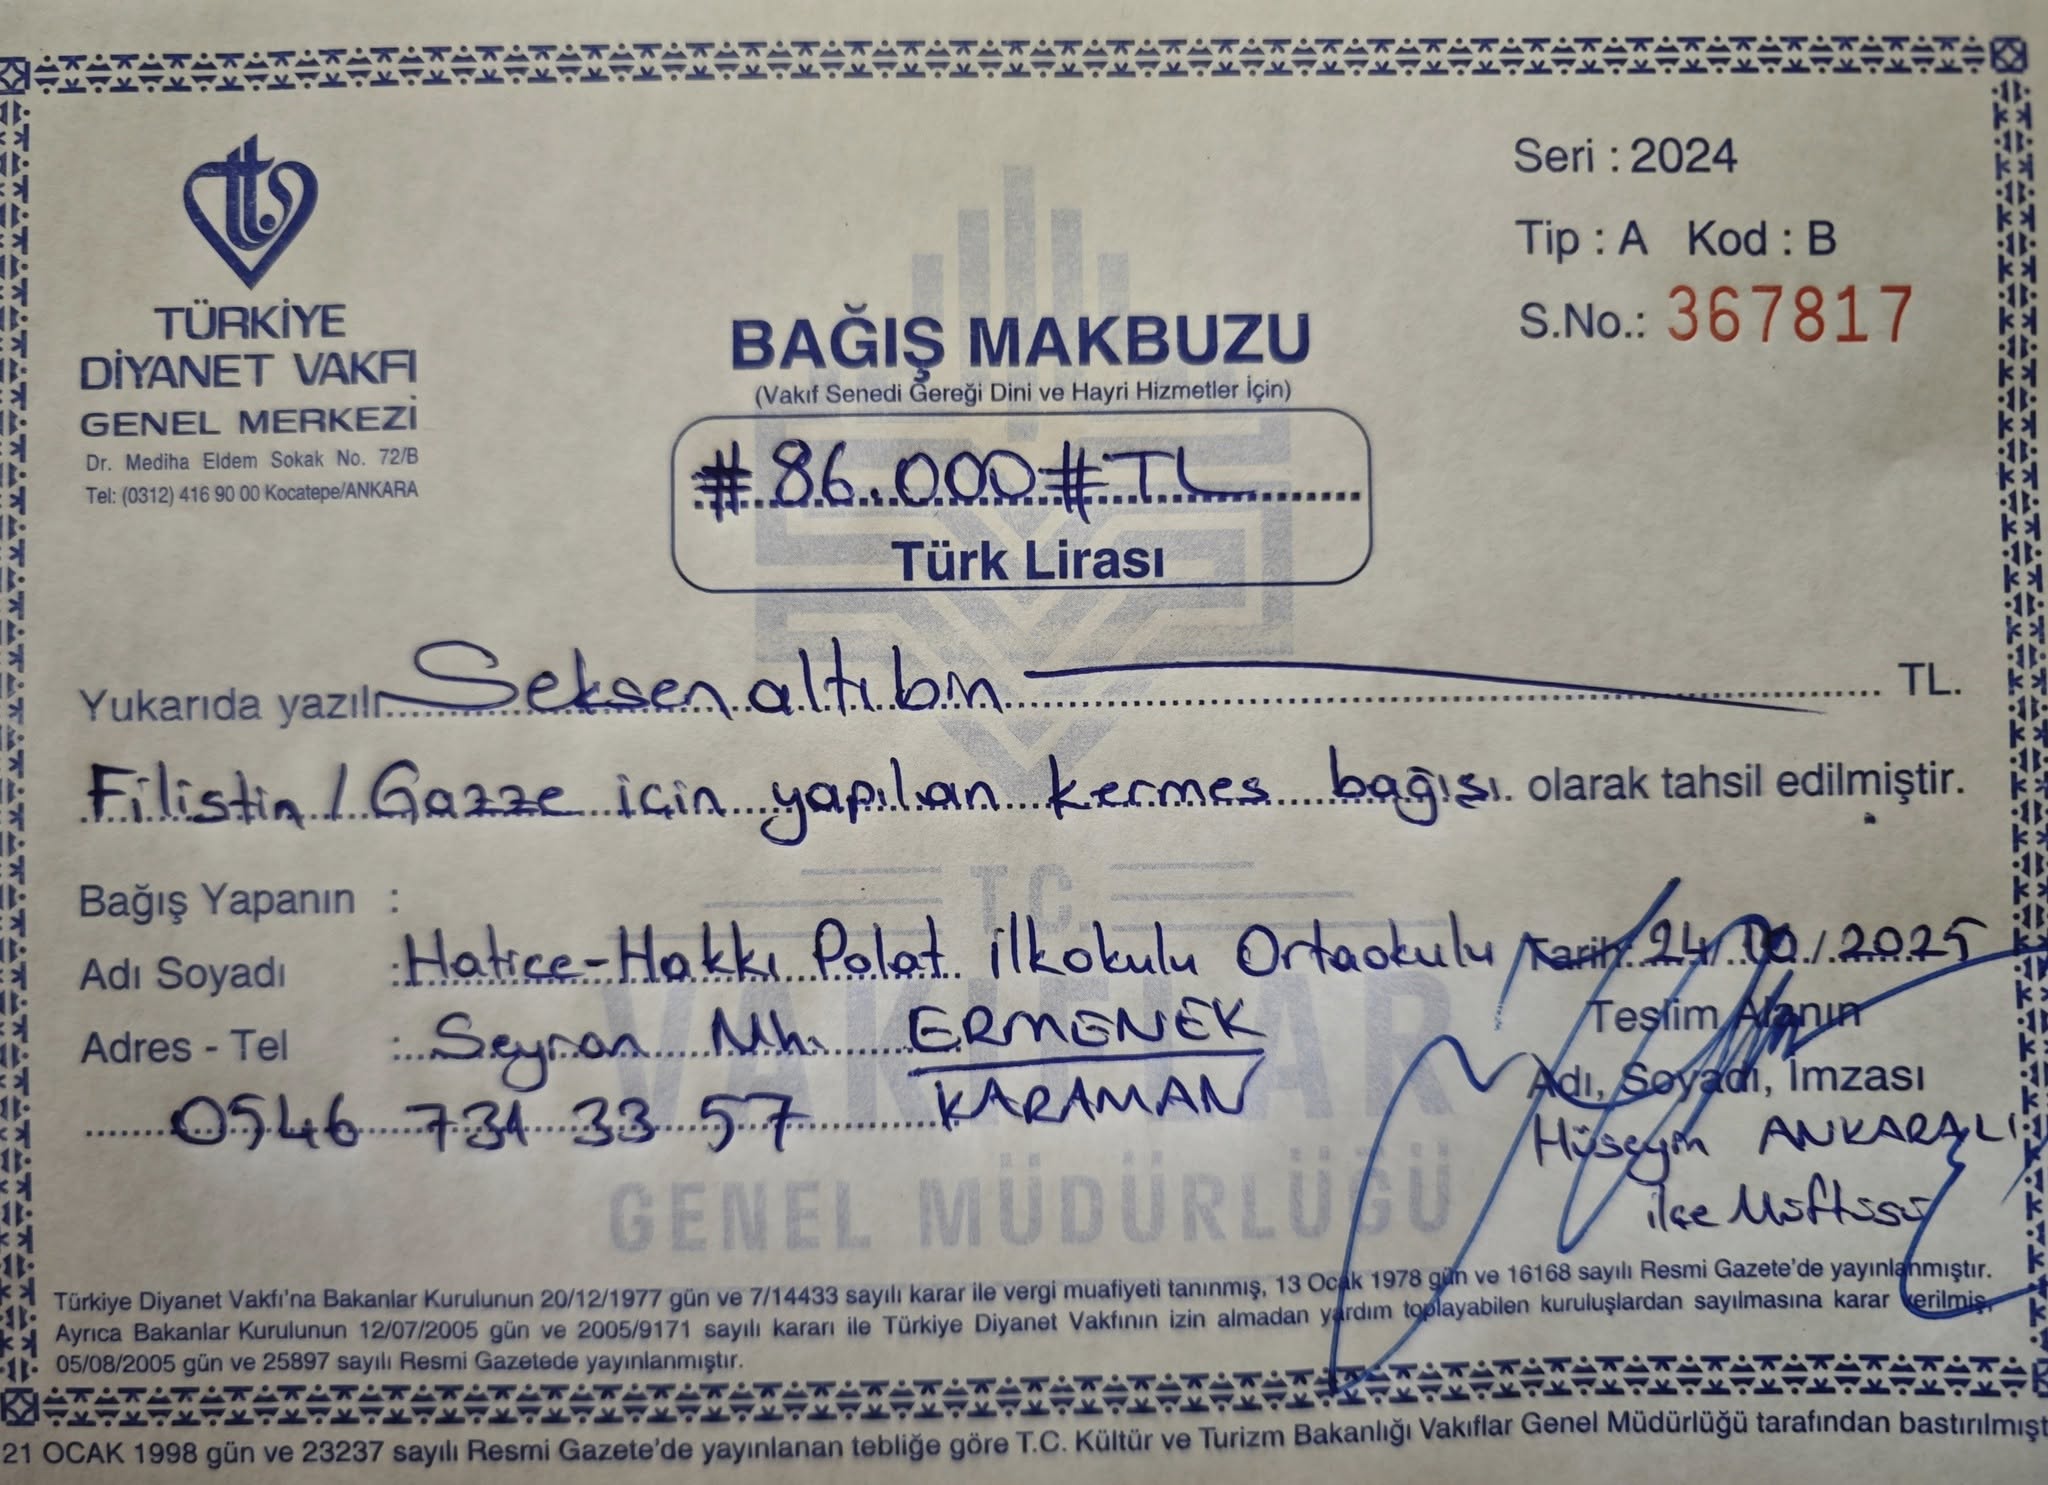 TÜRKİYE
DİYANET VAKFI
GENEL MERKEZİ
Dr. Mediha Eldem Sokak No. 72/B
Tel: (0312) 416 90 00 Kocatepe/ANKARA
Seri : 2024
Tip : A Kod : B
S.No.: 367817
BAĞIŞ MAKBUZU
(Vakıf Senedi Gereği Dini ve Hayri Hizmetler İçin)
# 86.000 # TL
Türk Lirası
Yukarıda yazılı Seksen altı bin TL.
Filistin / Gazze için yapılan kermes bağışı olarak tahsil edilmiştir.
Bağış Yapanın :
Adı Soyadı : Hatice-Hakkı Polat ilkokulu Ortaokulu
Adres - Tel : Seyran Mh. ERMENEK
KARAMAN
0546 731 33 57
Tarih: 24/10/2025
Teslim Alanın
Adı, Soyadı, İmzası
Hüseyin ANKARALI
ilçe Müftüsü
T.C.
VAKIFLAR
GENEL MÜDÜRLÜĞÜ
Türkiye Diyanet Vakfı'na Bakanlar Kurulunun 20/12/1977 gün ve 7/14433 sayılı karar ile vergi muafiyeti tanınmış, 13 Ocak 1978 gün ve 16168 sayılı Resmi Gazete'de yayınlanmıştır.
Ayrıca Bakanlar Kurulunun 12/07/2005 gün ve 2005/9171 sayılı kararı ile Türkiye Diyanet Vakfının izin almadan yardım toplayabilen kuruluşlardan sayılmasına karar verilmiş,
05/08/2005 gün ve 25897 sayılı Resmi Gazetede yayınlanmıştır.
21 OCAK 1998 gün ve 23237 sayılı Resmi Gazete'de yayınlanan tebliğe göre T.C. Kültür ve Turizm Bakanlığı Vakıflar Genel Müdürlüğü tarafından bastırılmışt